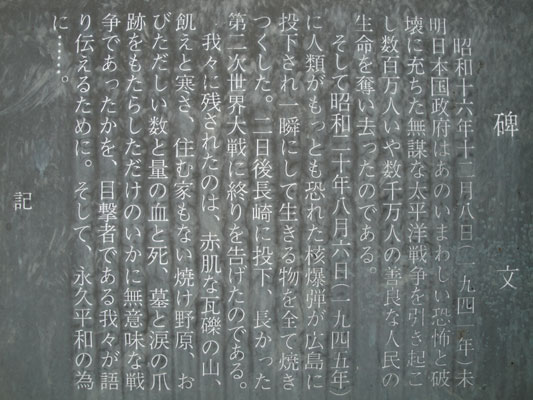 碑文
昭和十六年十二月八日（一九四一年）未
明日本国政府はあのいまわしい恐怖と破
壊に充ちた無謀な太平洋戦争を引き起こ
し数百万人いや数千万人の善良な人民の
生命を奪い去ったのである。
そして昭和二十年八月六日（一九四五年）
に人類がもっとも恐れた核爆弾が広島に
投下され一瞬にして生きる物を全て焼き
つくした。二日後長崎に投下、長かった
第二次世界大戦に終りを告げたのである。
我々に残されたのは、赤肌な瓦礫の山、
飢えと寒さ、住む家もない焼け野原、お
びただしい数と量の血と死、墓と涙の爪
跡をもたらしただけのいかに無意味な戦
争であったかを、目撃者である我々が語
り伝えるために。そして、永久平和の為
に……。
記